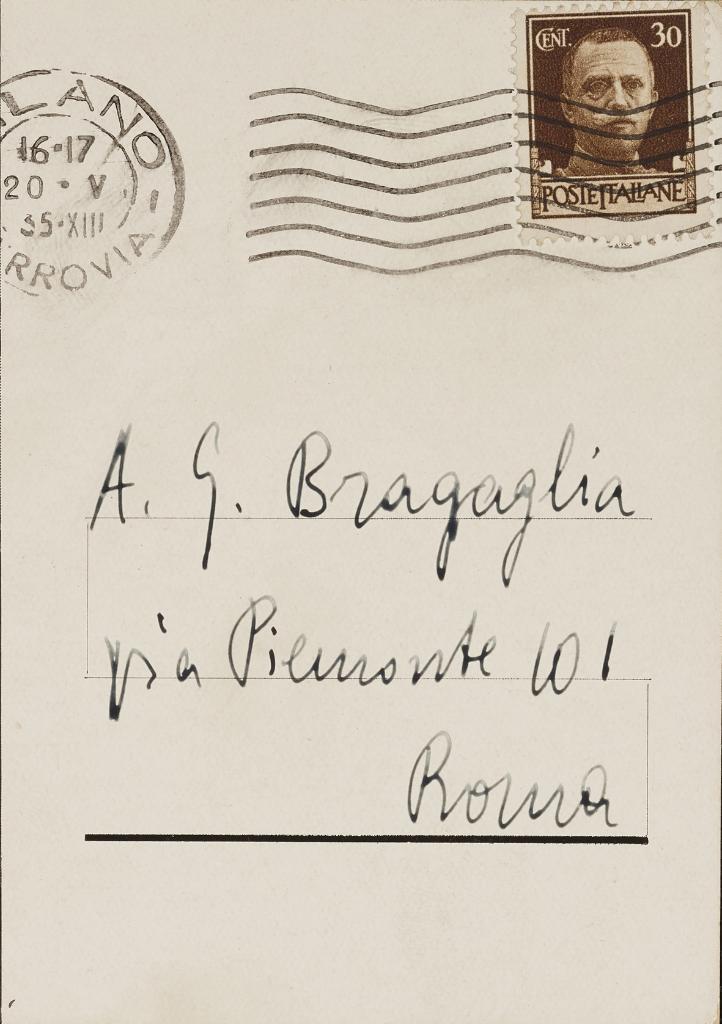 LANO
16-17
20 · V.
35·XIII
RROVIA
CENT. 30
POSTE ITALIANE
A. G. Bragaglia
via Piemonte 101
Roma